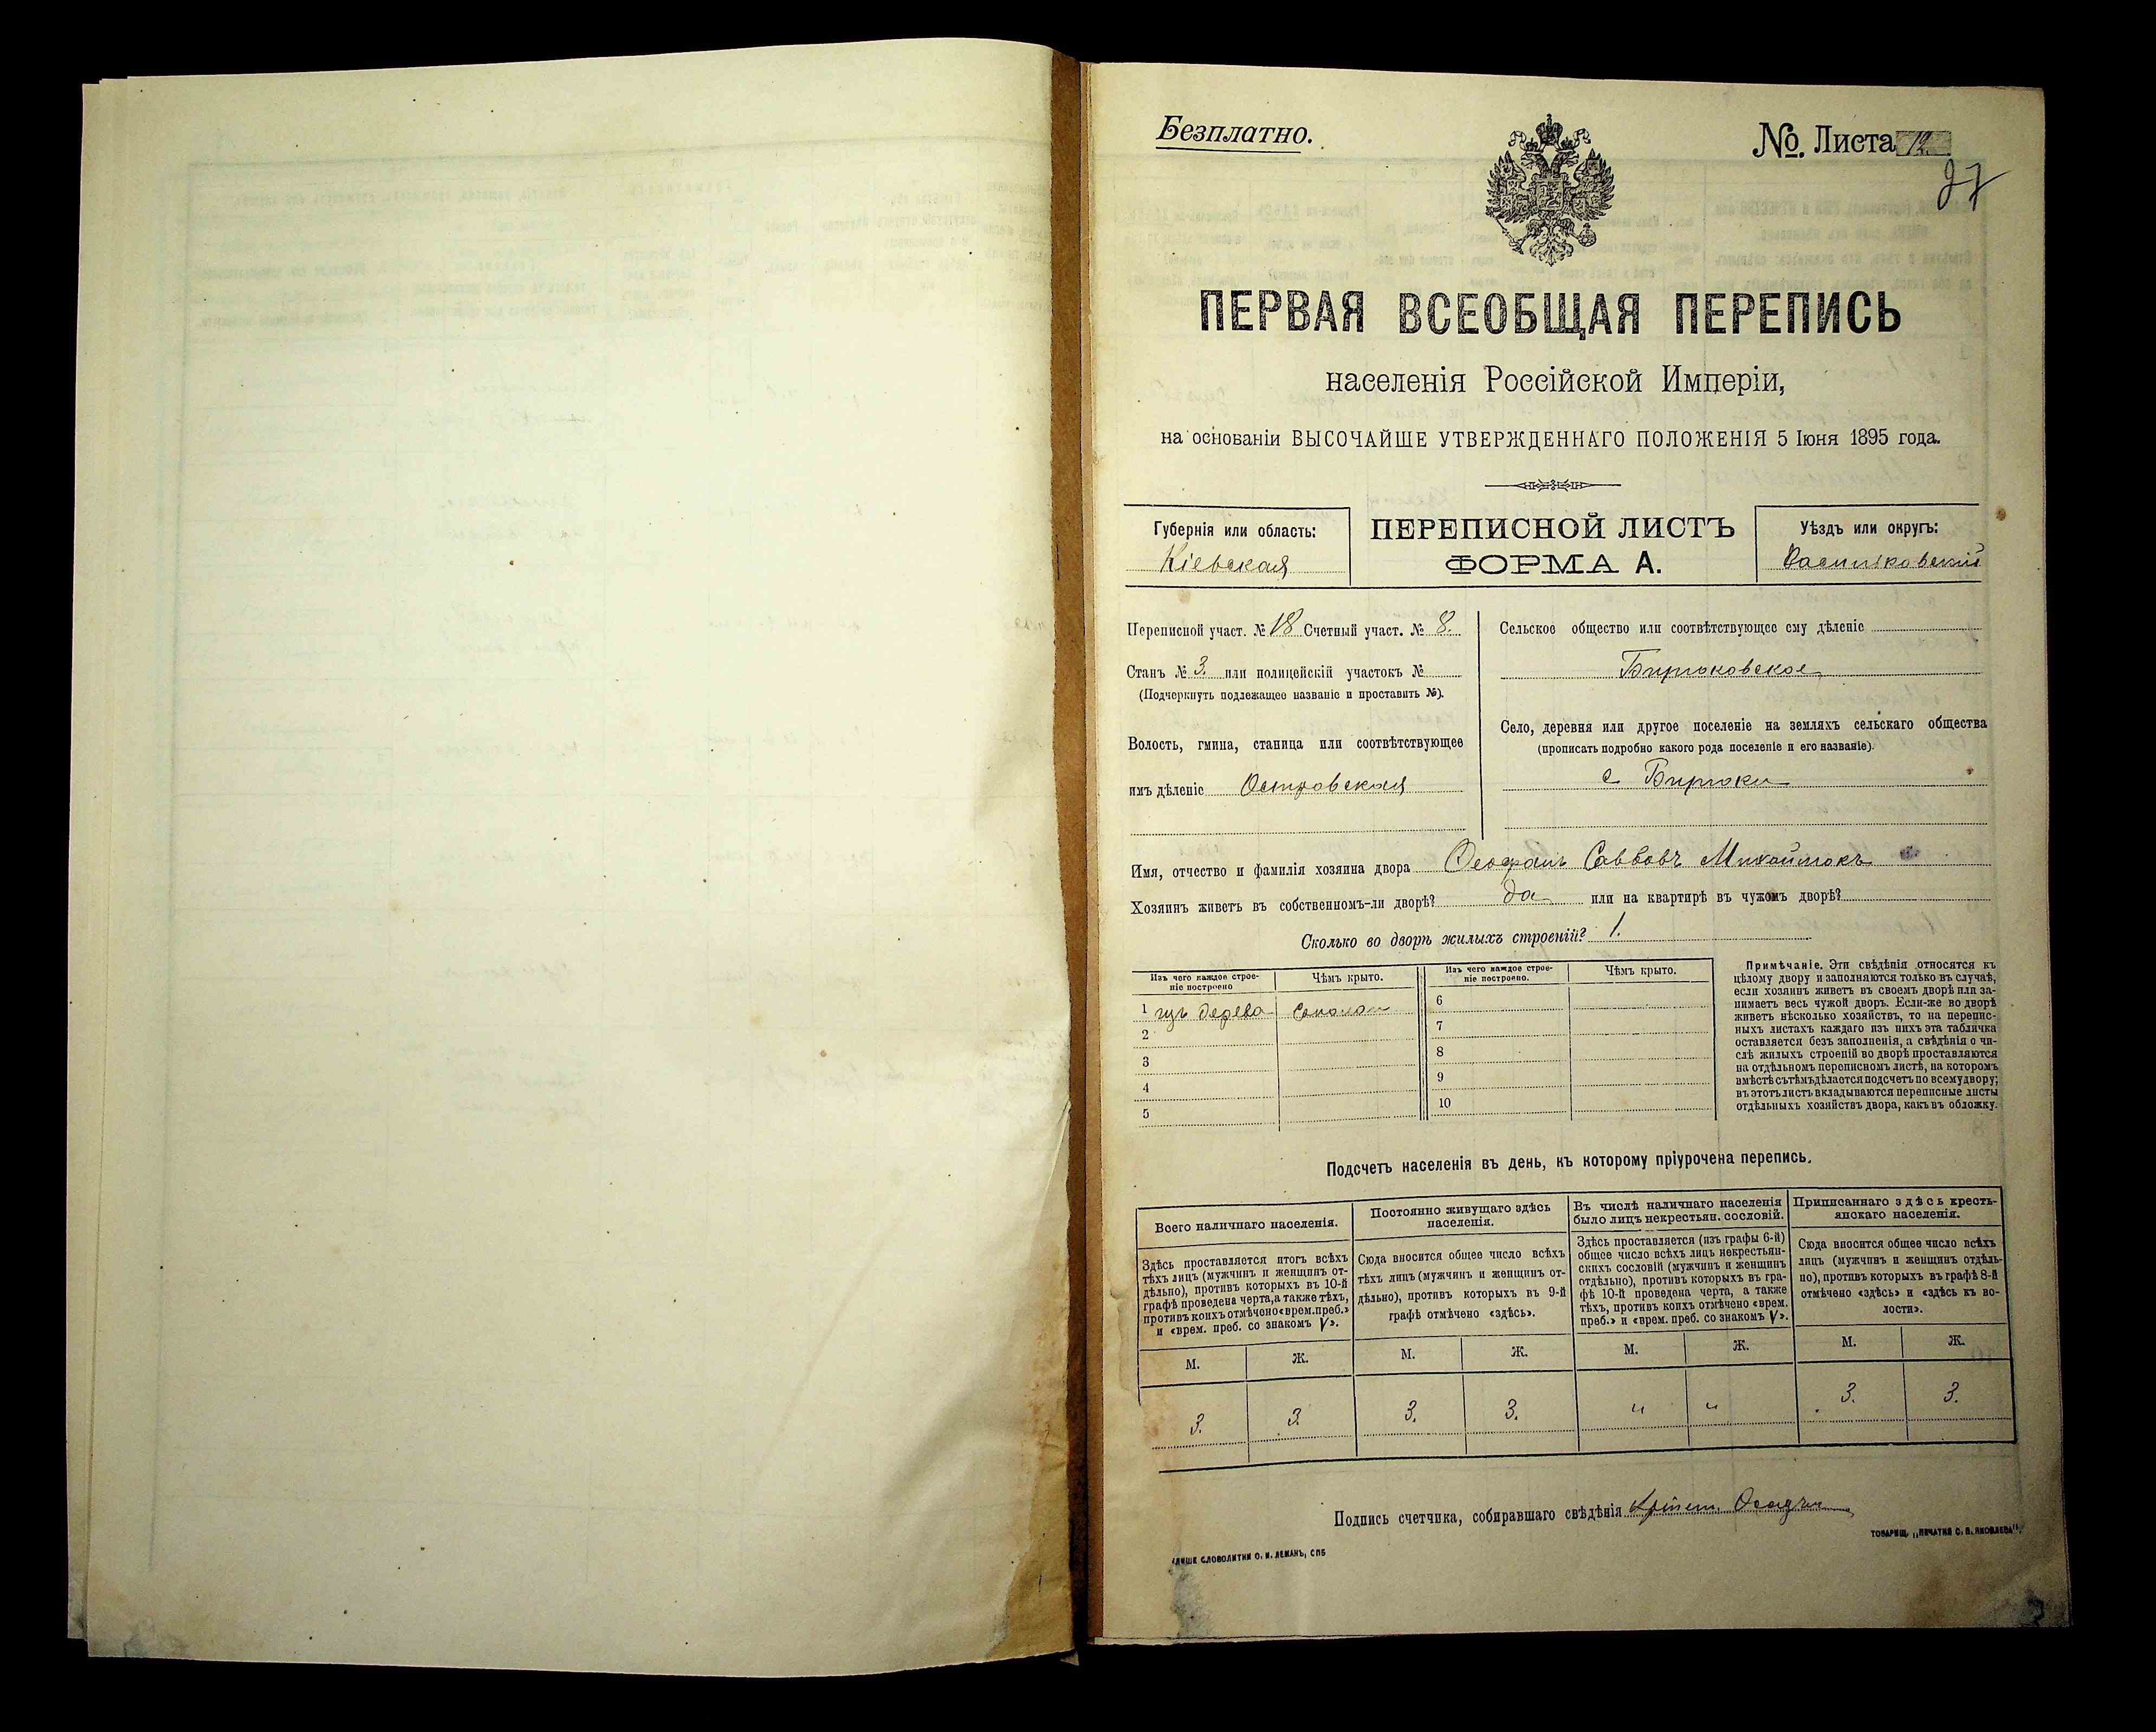 Безплатно.
№. Листа 12.
27
ПЕРВАЯ ВСЕОБЩАЯ ПЕРЕПИСЬ
населенія Россійской Имперіи,
на основаніи ВЫСОЧАЙШЕ УТВЕРЖДЕННАГО ПОЛОЖЕНІЯ 5 Іюня 1895 года.
Губернія или область:
Кіевская
ПЕРЕПИСНОЙ ЛИСТЪ
ФОРМА А.
Уѣздъ или округъ:
Васильковскій
Переписной участ. № 18 Счетный участ. № 8.
Станъ № 3. или полицейскій участокъ №
(Подчеркнуть подлежащее названіе и проставить №).
Волость, гмина, станица или соотвѣтствующее
имъ дѣленіе Островская
Сельское общество или соотвѣтствующее ему дѣленіе
Бирюковское
Село, деревня или другое поселеніе на земляхъ сельскаго общества
(прописать подробно какого рода поселеніе и его названіе).
с Бирюки
Имя, отчество и фамилія хозяина двора Ѳеофанъ Саввовъ Михайлюкъ
Хозяинъ живетъ въ собственномъ-ли дворѣ? да или на квартирѣ въ чужомъ дворѣ?
Сколько во дворѣ жилыхъ строеній? 1.
Изъ чего каждое строе-
ніе построено
Чѣмъ крыто.
Изъ чего каждое строе-
ніе построено.
Чѣмъ крыто.
1 изъ дерева соломою
2
3
4
5
6
7
8
9
10
Примѣчаніе. Эти свѣдѣнія относятся къ
цѣлому двору и заполняются только въ случаѣ,
если хозяинъ живетъ въ своемъ дворѣ или за-
нимаетъ весь чужой дворъ. Если-же во дворѣ
живетъ нѣсколько хозяйствъ, то на перепис-
ныхъ листахъ каждаго изъ нихъ эта табличка
оставляется безъ заполненія, а свѣдѣнія о чи-
слѣ жилыхъ строеній во дворѣ проставляются
на отдѣльномъ переписномъ листѣ, на которомъ
вмѣстѣ съ тѣмъ дѣлается подсчетъ по всему двору;
въ этотъ листъ вкладываются переписные листы
отдѣльныхъ хозяйствъ двора, какъ въ обложку.
Подсчетъ населенія въ день, къ которому пріурочена перепись.
Всего наличнаго населенія.
Постоянно живущаго здѣсь
населенія.
Въ числѣ наличнаго населенія
было лицъ некрестьян. сословій.
Приписаннаго здѣсь кресть-
янскаго населенія.
Здѣсь проставляется итогъ всѣхъ
тѣхъ лицъ (мужчинъ и женщинъ от-
дѣльно), противъ которыхъ въ 10-й
графѣ проведена черта, а также тѣхъ,
противъ коихъ отмѣчено «врем. преб.»
и «врем. преб. со знакомъ V».
Сюда вносится общее число всѣхъ
тѣхъ лицъ (мужчинъ и женщинъ от-
дѣльно), противъ которыхъ въ 9-й
графѣ отмѣчено «здѣсь».
Здѣсь проставляется (изъ графы 6-й)
общее число всѣхъ лицъ некрестьян-
скихъ сословій (мужчинъ и женщинъ
отдѣльно), противъ которыхъ въ гра-
фѣ 10-й проведена черта, а также
тѣхъ, противъ коихъ отмѣчено «врем.
преб.» и «врем. преб. со знакомъ V».
Сюда вносится общее число всѣхъ
лицъ (мужчинъ и женщинъ отдѣль-
но), противъ которыхъ въ графѣ 8-й
отмѣчено «здѣсь» и «здѣсь къ во-
лости».
М. Ж. М. Ж. М. Ж. М. Ж.
3. 3. 3. 3. " " 3. 3.
Подпись счетчика, собиравшаго свѣдѣнія
ТОВАРИЩ. „ПЕЧАТНЯ С. П. ЯКОВЛЕВА".
КЛИШЕ СЛОВОЛИТНИ О. И. ЛЕМАНЪ, СПБ